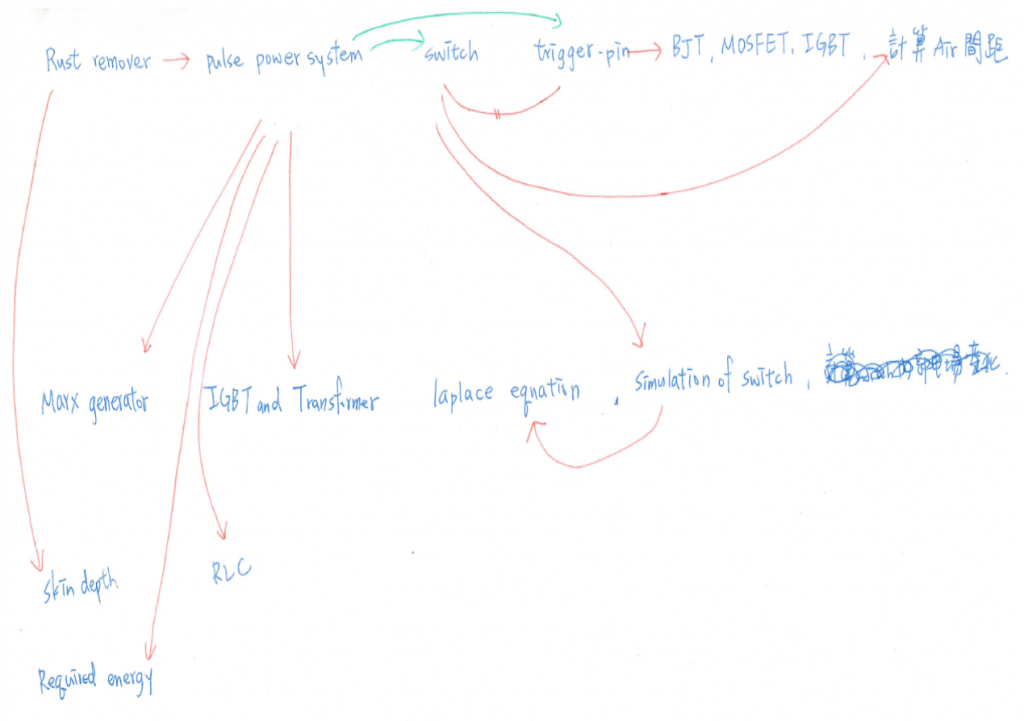 Rust remover → pulse power system switch trigger-pin → BJT, MOSFET, IGBT, 計算 Air 間距
Marx generator IGBT and Transformer laplace equation, simulation of switch,
Skin depth RLC
Required energy